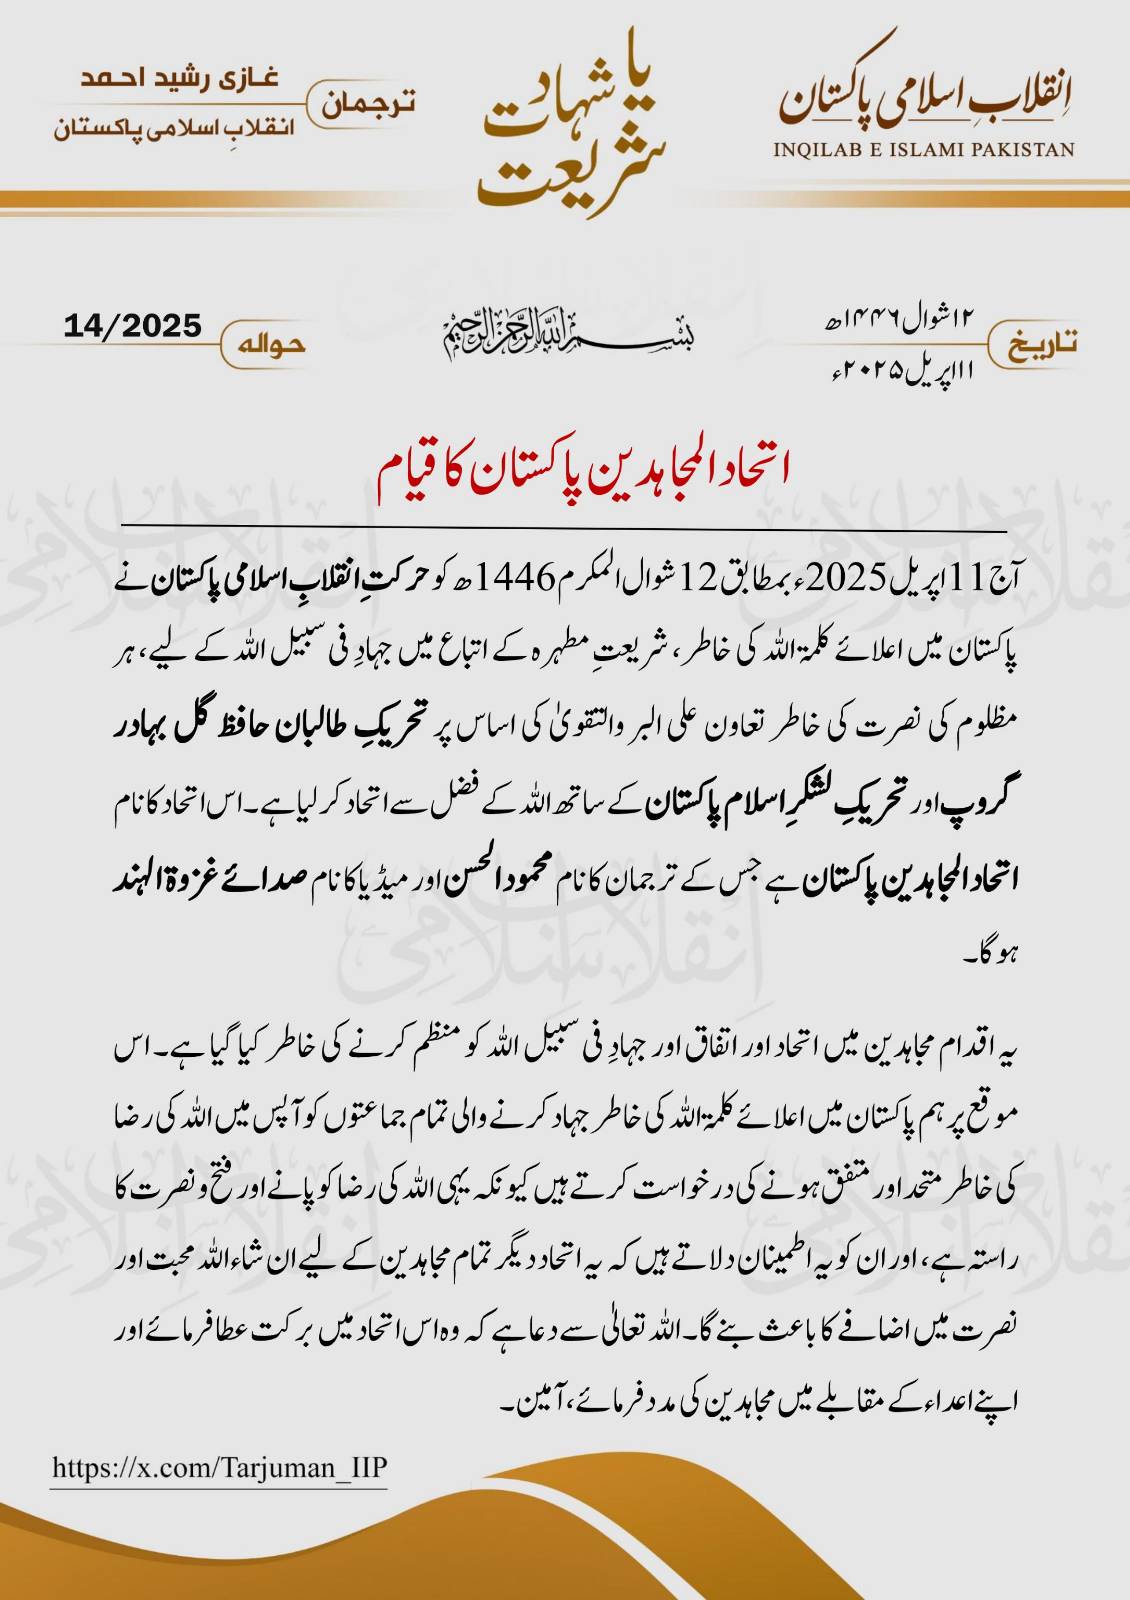 اِنقلابِ اسلامی پاکستان
INQILAB E ISLAMI PAKISTAN
یا شہادت
شریعت
ترجمان
غازی رشید احمد
انقلابِ اسلامی پاکستان
تاریخ
۱۲ شوال ۱۴۴۶ھ
۱۱ اپریل ۲۰۲۵ء
بسم اللہ الرحمن الرحیم
حوالہ
14/2025
اتحاد المجاہدین پاکستان کا قیام
آج 11 اپریل 2025ء بمطابق 12 شوال المکرم 1446ھ کو حرکتِ اِنقلابِ اسلامی پاکستان نے
پاکستان میں اعلائے کلمۃ اللہ کی خاطر، شریعتِ مطہرہ کے اتباع میں جہادِ فی سبیل اللہ کے لیے، ہر
مظلوم کی نصرت کی خاطر تعاون علی البر والتقویٰ کی اساس پر تحریکِ طالبان حافظ گل بہادر
گروپ اور تحریکِ لشکرِ اسلام پاکستان کے ساتھ اللہ کے فضل سے اتحاد کر لیا ہے۔ اس اتحاد کا نام
اتحاد المجاہدین پاکستان ہے جس کے ترجمان کا نام محمود الحسن اور میڈیا کا نام صدائے غزوۃ الہند
ہو گا۔
یہ اقدام مجاہدین میں اتحاد اور اتفاق اور جہادِ فی سبیل اللہ کو منظم کرنے کی خاطر کیا گیا ہے۔ اس
موقع پر ہم پاکستان میں اعلائے کلمۃ اللہ کی خاطر جہاد کرنے والی تمام جماعتوں کو آپس میں اللہ کی رضا
کی خاطر متحد اور متفق ہونے کی درخواست کرتے ہیں کیونکہ یہی اللہ کی رضا کو پانے اور فتح و نصرت کا
راستہ ہے، اور ان کو یہ اطمینان دلاتے ہیں کہ یہ اتحاد دیگر تمام مجاہدین کے لیے ان شاء اللہ محبت اور
نصرت میں اضافے کا باعث بنے گا۔ اللہ تعالیٰ سے دعا ہے کہ وہ اس اتحاد میں برکت عطا فرمائے اور
اپنے اعداء کے مقابلے میں مجاہدین کی مدد فرمائے، آمین۔
https://x.com/Tarjuman_IIP